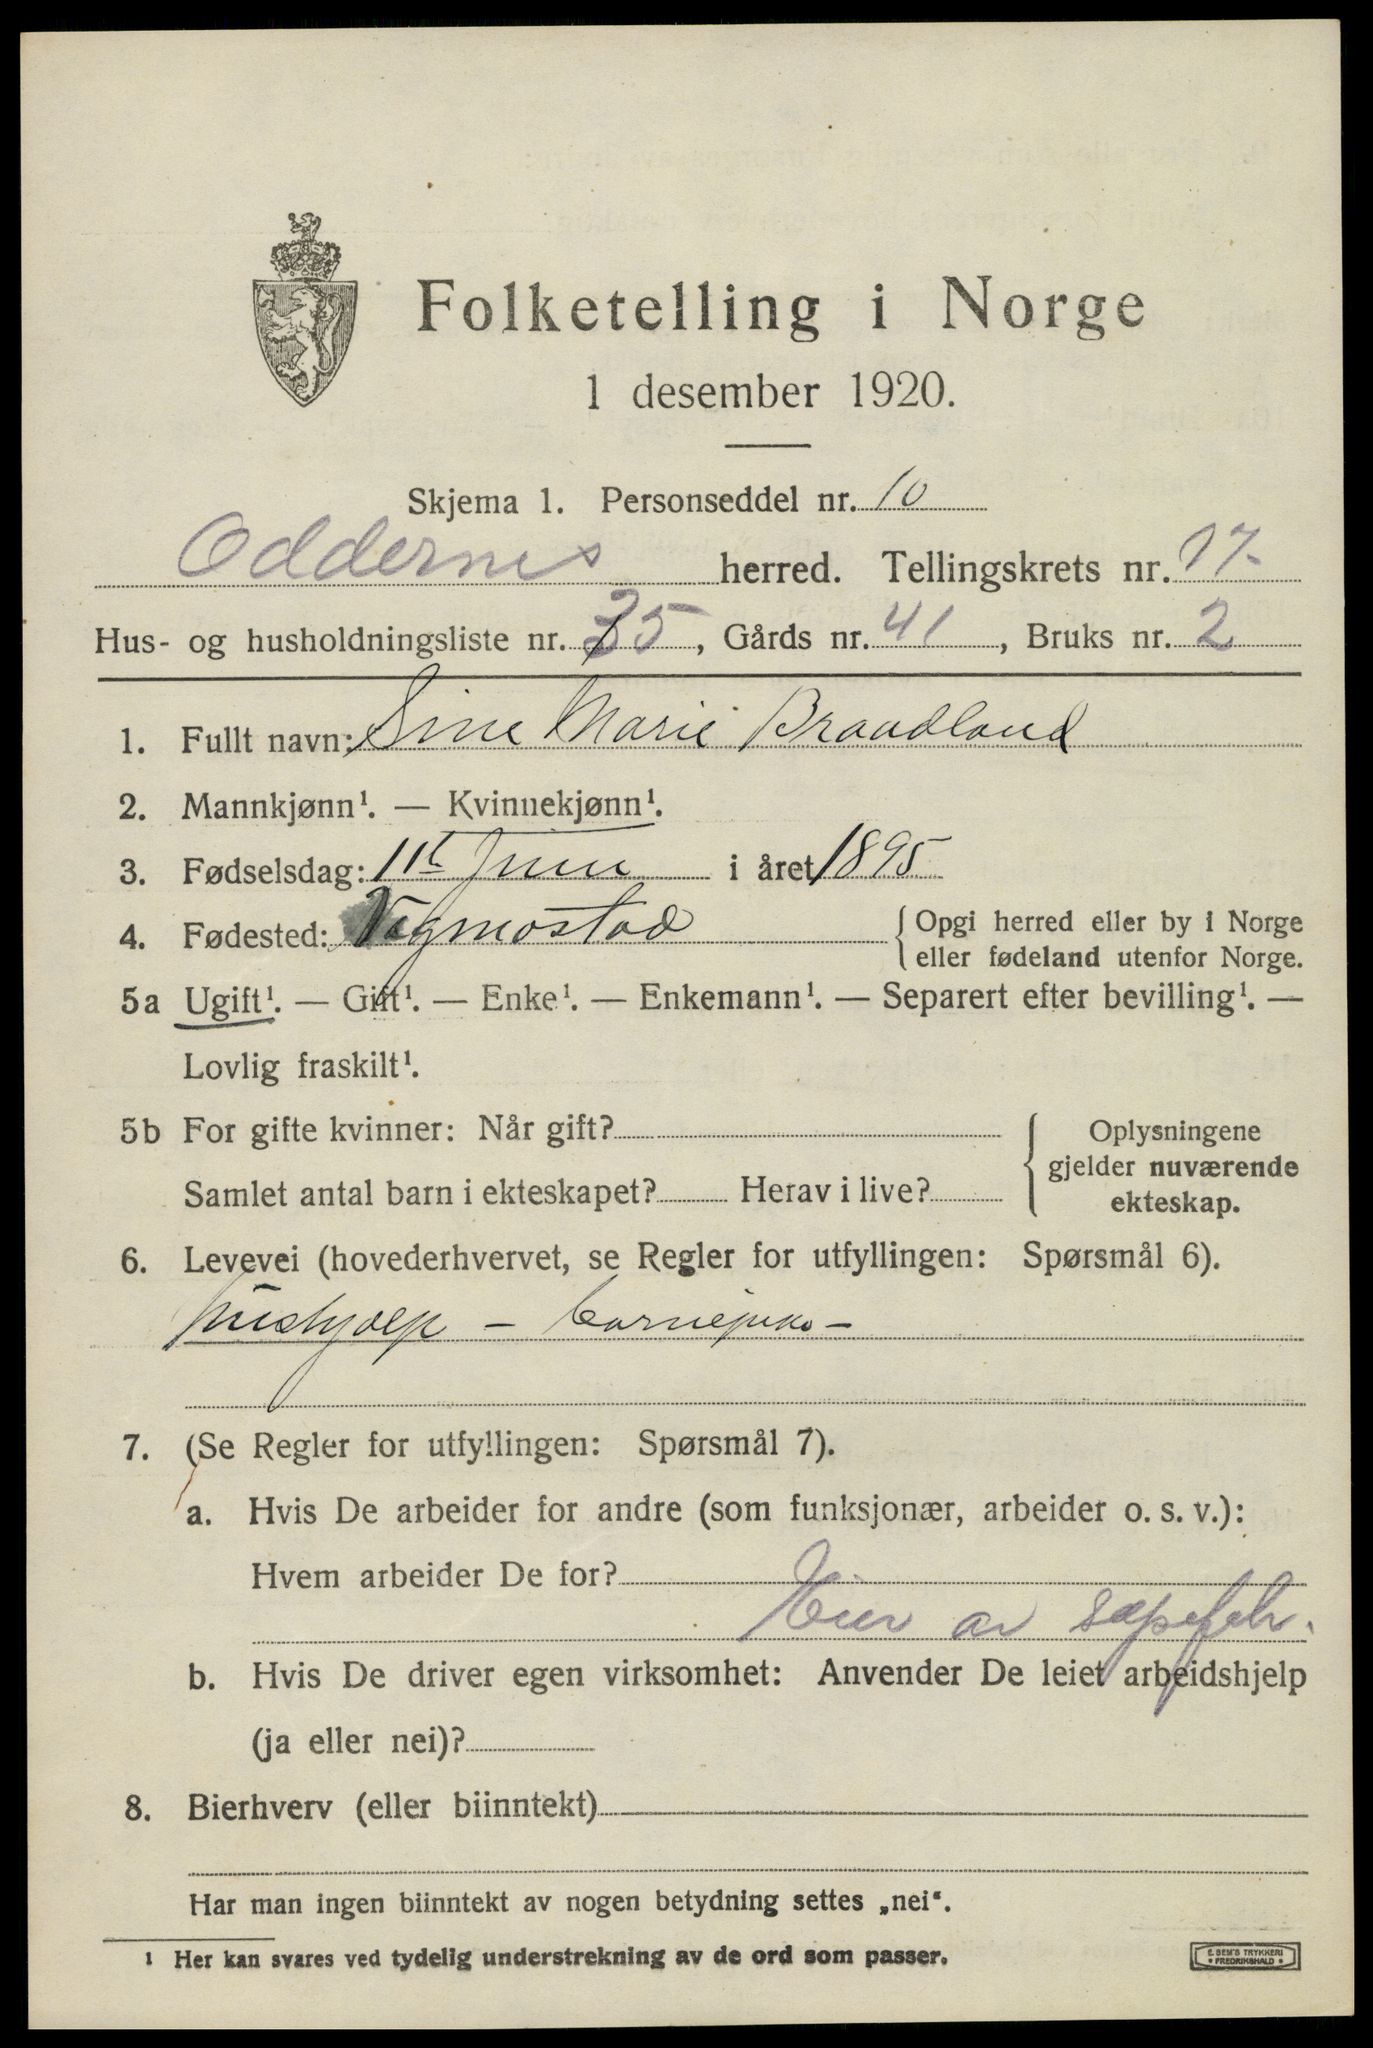 Folketelling i Norge
1 desember 1920.
Skjema 1. Personseddel nr. 10
Oddernes herred. Tellingskrets nr. 17.
Hus- og husholdningsliste nr. 35, Gårds nr. 41, Bruks nr. 2
1. Fullt navn: Sine Marie Braadland
2. Mannkjønn¹. — Kvinnekjønn¹.
3. Fødselsdag: 11t Juni i året 1895
4. Fødested: Vegmostad { Opgi herred eller by i Norge
eller fødeland utenfor Norge.
5a Ugift¹. — Gift¹. — Enke¹. — Enkemann¹. — Separert efter bevilling¹. —
Lovlig fraskilt¹.
5b For gifte kvinner: Når gift? { Oplysningene
gjelder nuværende
Samlet antal barn i ekteskapet? Herav i live? ekteskap.
6. Levevei (hovederhvervet, se Regler for utfyllingen: Spørsmål 6).
Hushjælp – barnepike –
7. (Se Regler for utfyllingen: Spørsmål 7).
a. Hvis De arbeider for andre (som funksjonær, arbeider o. s. v.):
Hvem arbeider De for?
Eier av sæpefabr.
b. Hvis De driver egen virksomhet: Anvender De leiet arbeidshjelp
(ja eller nei)?
8. Bierhverv (eller biinntekt)
Har man ingen biinntekt av nogen betydning settes „nei“.
¹ Her kan svares ved tydelig understrekning av de ord som passer.
E. SEM'S TRYKKERI
* FREDRIKSHALD *